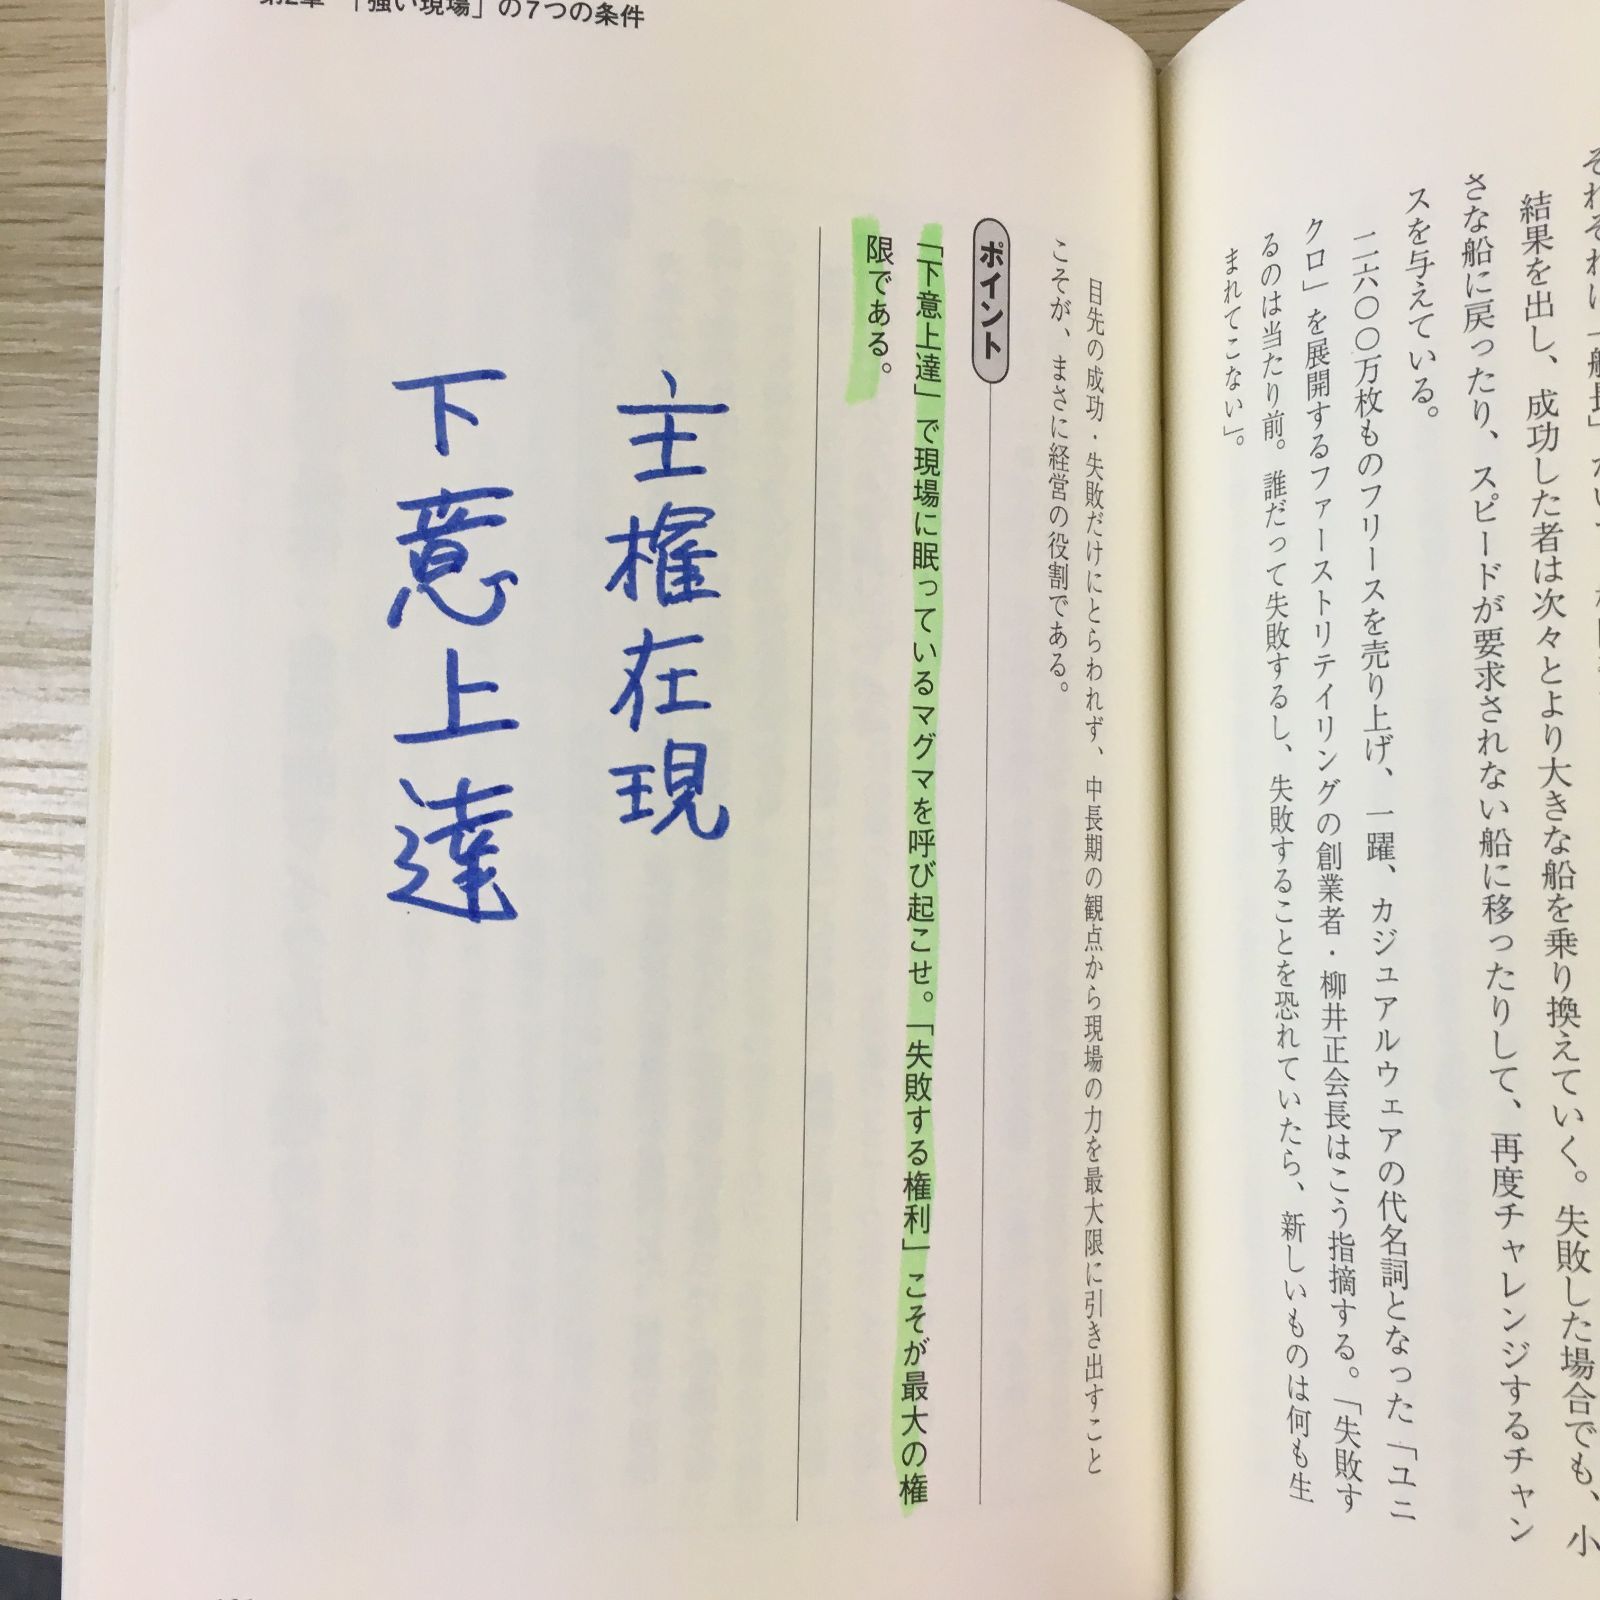 第2章 「強い現場」の7つの条件
結果を出し、成功した者は次々とより大きな船を乗り換えていく。失敗した場合でも、小
さな船に戻ったり、スピードが要求されない船に移ったりして、再度チャレンジするチャン
スを与えている。
二六〇〇万枚ものフリースを売り上げ、一躍、カジュアルウェアの代名詞となった「ユニ
クロ」を展開するファーストリテイリングの創業者・柳井正会長はこう指摘する。「失敗す
るのは当たり前。誰だって失敗するし、失敗することを恐れていたら、新しいものは何も生
まれてこない」。
目先の成功・失敗だけにとらわれず、中長期の観点から現場の力を最大限に引き出すこと
こそが、まさに経営の役割である。
ポイント
「下意上達」で現場に眠っているマグマを呼び起こせ。「失敗する権利」こそが最大の権
限である。
主権在現
下意上達